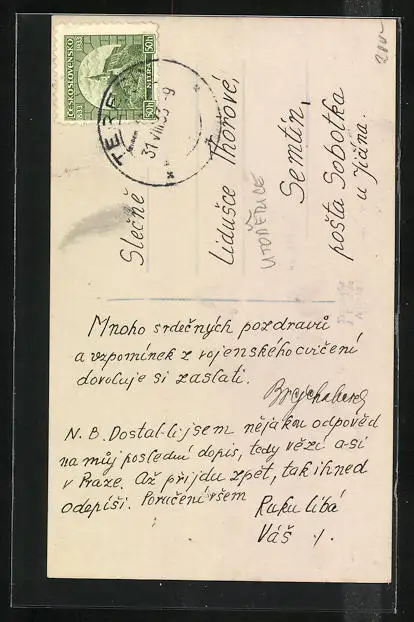 ČESKOSLOVENSKO
833 1933
NITRA
50h 50h
31 VIII 33-9
Slečně
Lidušce Thorové,
Semtín,
pošta Sobotka
u Jičína.
Mnoho srdečných pozdravů
a vzpomínek z vojenského cvičení
dovoluje si zaslati.
N. B. Dostal-li jsem nějakou odpověd
na můj poslední dopis, tedy vězí a-si
v Praze. Až přijdu zpět, tak ihned
odepíši. Poručení všem
Ruku líbá
Váš